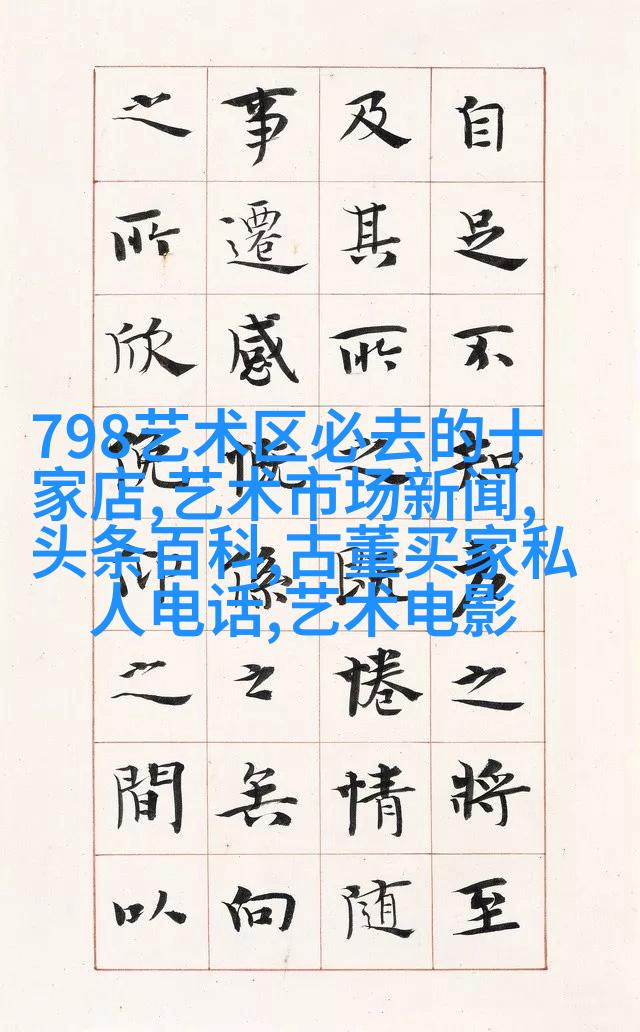 自足不知老之將至
及其所之既惓情随
事遷感慨係之矣向
之所欣俛仰之間以
798艺术区必去的十
家店,艺术市场新闻,
头条百科,古董买家私
人电话,艺术电影